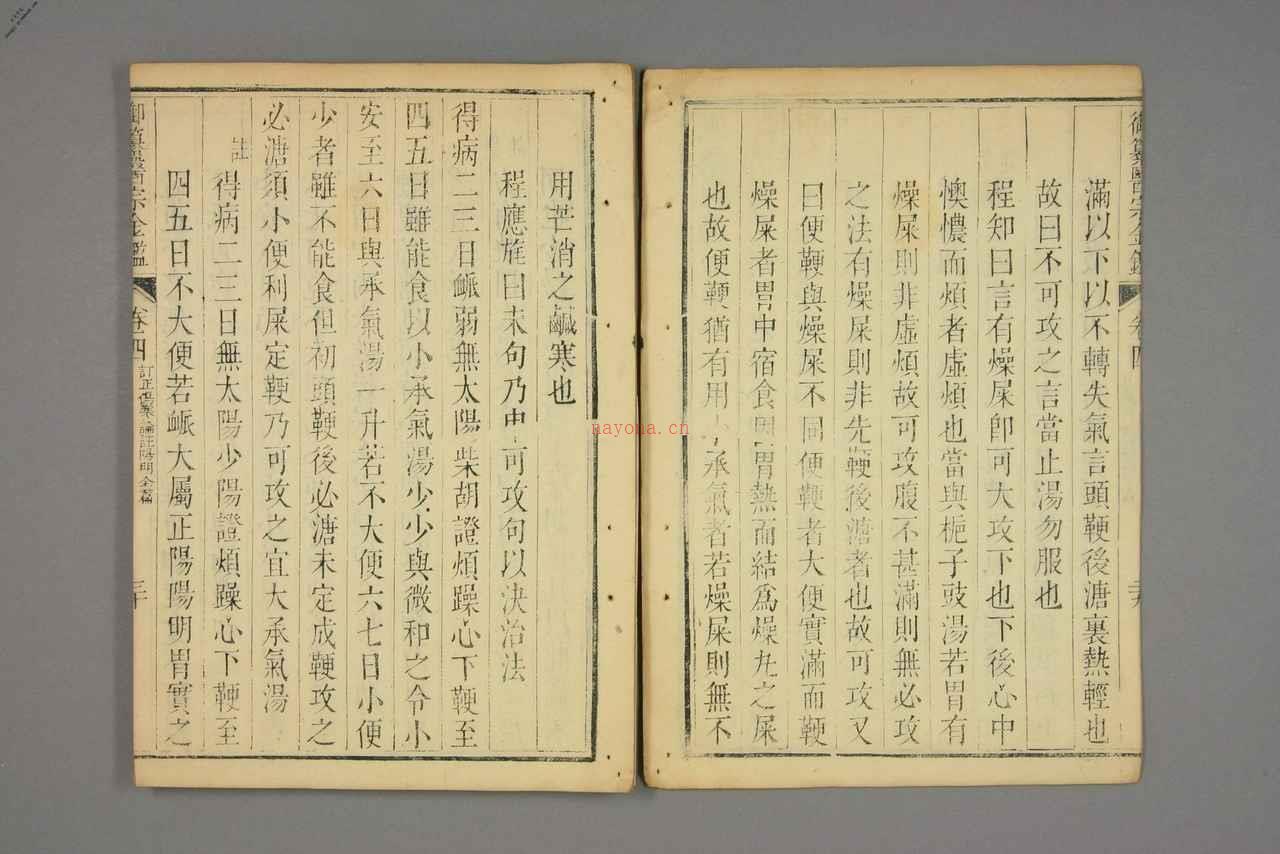 御纂醫宗金鑑 卷四
滿以下以不轉失氣言頭鞕後溏裏熱輕也
故曰不可攻之言當止湯勿服也
程知曰言有燥屎卽可大攻下也下後心中
懊憹而煩者虛煩也當與梔子豉湯若胃有
燥屎則非虛煩故可攻腹不甚滿則無必攻
之法有燥屎則非先鞕後溏者也故可攻又
曰便鞕與燥屎不同便鞕者大便實滿而鞕
燥屎者胃中宿食因胃熱而結爲燥丸之屎
也故便鞕猶有用小承氣者若燥屎則無不
用芒消之鹹寒也
程應旄曰末句乃申可攻句以決治法
得病二三日脈弱無太陽柴胡證煩躁心下鞕至
四五日雖能食以小承氣湯少少與微和之令小
安至六日與承氣湯一升若不大便六七日小便
少者雖不能食但初頭鞕後必溏未定成鞕攻之
必溏須小便利屎定鞕乃可攻之宜大承氣湯
註
得病二三日無太陽少陽證煩躁心下鞕至
四五日不大便若脈大屬正陽陽明胃實之
御纂醫宗金鑑 卷四 訂正傷寒論註陽明全篇 三十
nayona.cn